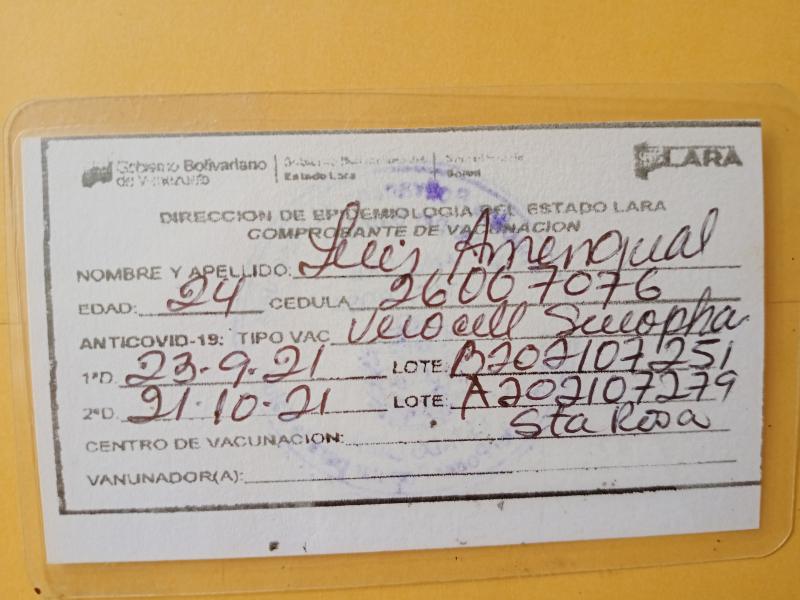 Gobierno Bolivariano de Venezuela
Estado Lara
LARA
DIRECCION DE EPIDEMIOLOGIA DEL ESTADO LARA
COMPROBANTE DE VACUNACION
NOMBRE Y APELLIDO: Luis Amengual
EDAD: 24 CEDULA 26007076
ANTICOVID-19: TIPO VAC Verocell Sinopha
1ªD. 23-9-21 LOTE: B202107251
2ªD. 21-10-21 LOTE: A202107279
CENTRO DE VACUNACION: Sta Rosa
VANUNADOR(A):